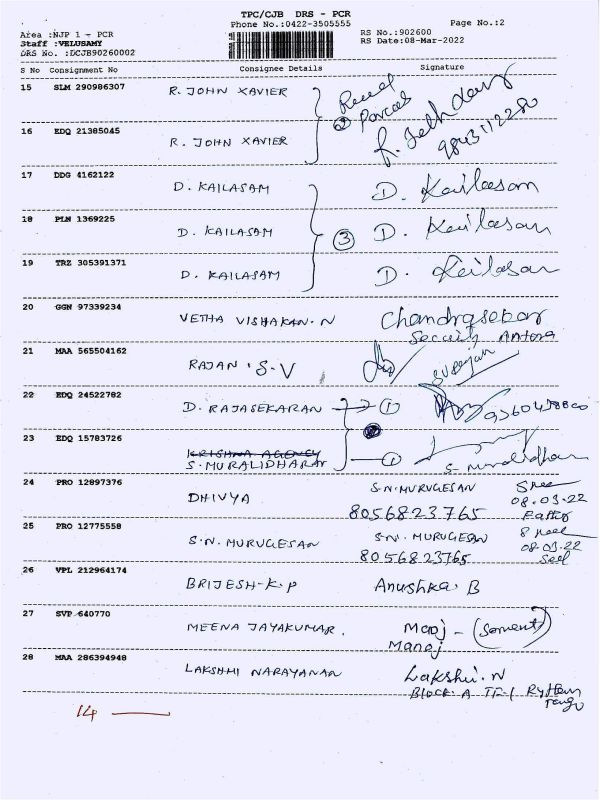 TPC/CJB DRS - PCR
Phone No.:0422-3505555
Page No.:2
Area :NJP 1 - PCR
RS No.:902600
Staff :VELUSAMY
RS Date:08-Mar-2022
DRS No. :DCJB90260002
S No Consignment No Consignee Details Signature
15 SLM 290986307 R. JOHN XAVIER
16 EDQ 21385045 R. JOHN XAVIER
17 DDG 4162122 D. KAILASAM D. Kailasam
18 PLN 1369225 D. KAILASAM 3 D. Kailasam
19 TRZ 305391371 D. KAILASAM D. Kailasam
20 GGN 97339234 VETHA VISHAKAN.N Chandrasekar
Security
21 MAA 565504162 RAJAN.S.V
22 EDQ 24522782 D. RAJASEKARAN 1
23 EDQ 15783726 KRISHNA AGENCY
S. MURALIDHARAN 1 S- muralidharan
24 PRO 12897376 DHIVYA S.N. MURUGESAN
8056823765 08.03.22
25 PRO 12775558 S.N. MURUGESAN S.N. MURUGESAN
8056823765 08.03.22
26 VPL 212964174 BRIJESH-K.P Anushka. B
27 SVP 640770 MEENA JAYAKUMAR. Manoj
28 MAA 286394948 LAKSHMI NARAYANAN Lakshmi.N
Block-A
14